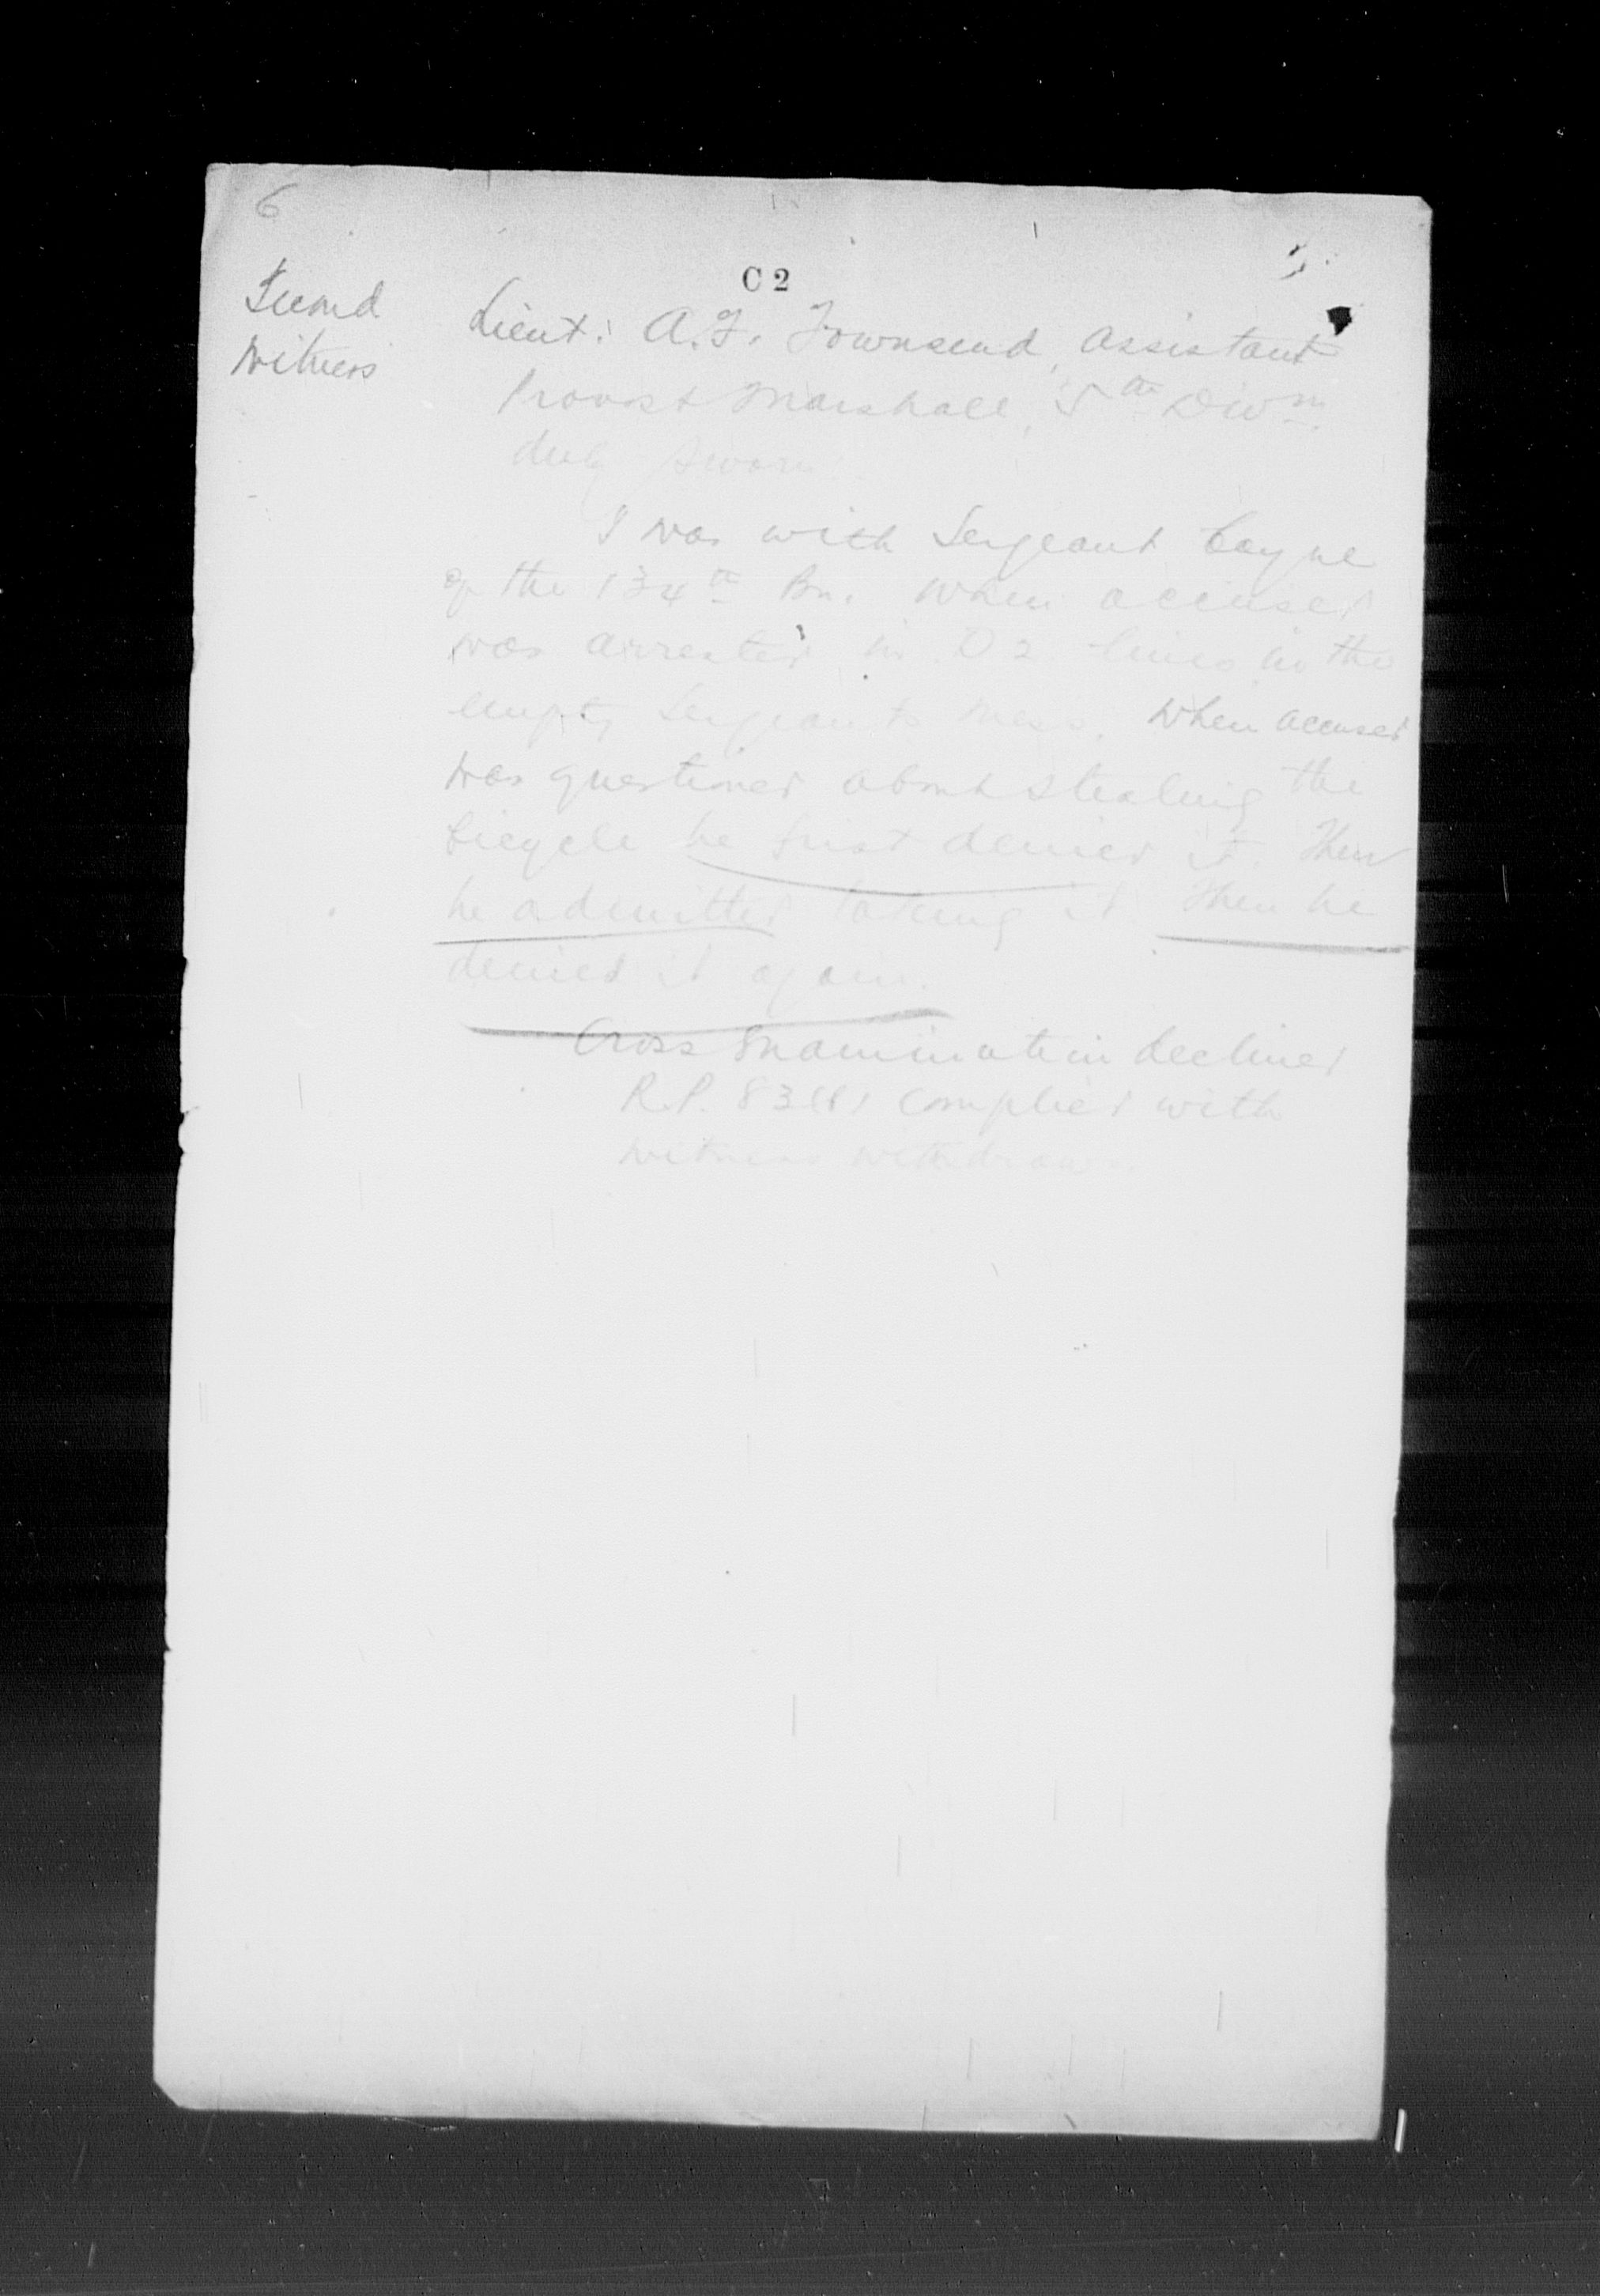 6
C 2
Second
Witness
Lieut: A.F. Townsend, Assistant
Provost Marshall, 5th Divn.
duly sworn
I was with Sergeant Cayne
of the 134th Bn. when accused
was arrested in D 2 lines in the
empty Sergeants Mess. When accused
was questioned about stealing the
bicycle he first denied it. Then
he admitted taking it. Then he
denied it again.
Cross Examination declined
R.P. 83 complied with
witness withdraws